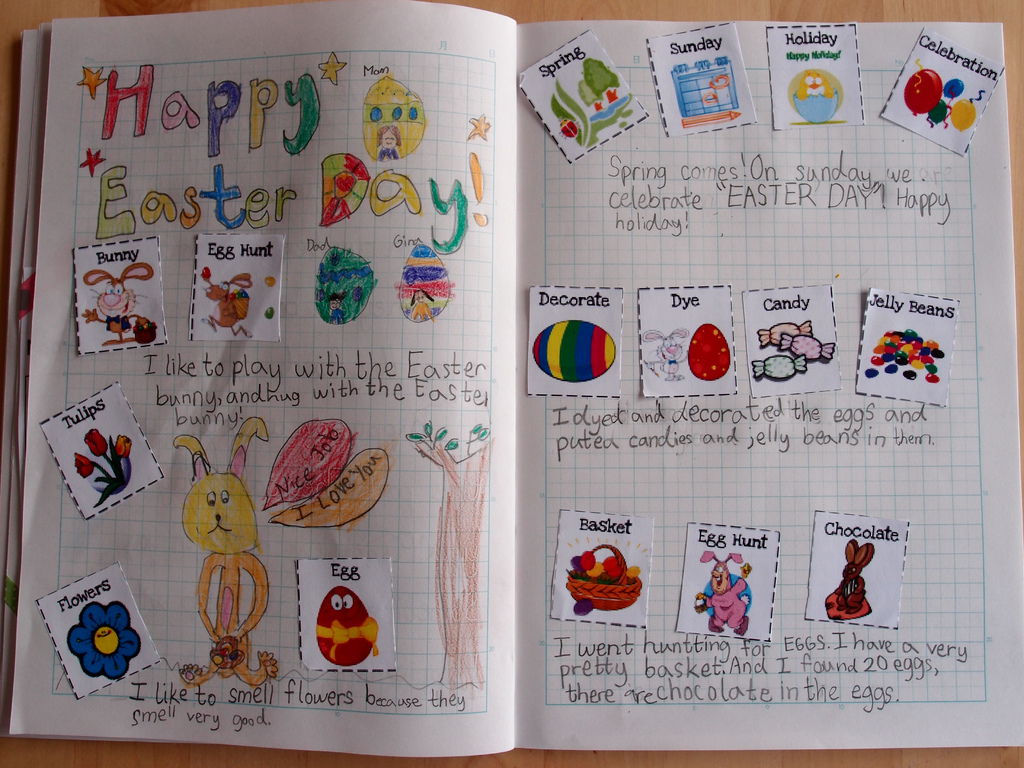 Happy
Mom
Easter Day!
Dad
Gina
Bunny
Egg Hunt
I like to play with the Easter
bunny, and hug with the Easter
bunny!
Tulips
Nice Job
I Love You
Flowers
Egg
I like to smell flowers because they
smell very good.
Spring
Sunday
Holiday
Happy Holiday!
Celebration
Spring comes! On sunday, we are
celebrate "EASTER DAY"! Happy
holiday!
Decorate
Dye
Candy
Jelly Beans
I dyed and decorated the eggs and
puted candies and jelly beans in them.
Basket
Egg Hunt
Chocolate
I went huntting for EGGS. I have a very
pretty basket. And I found 20 eggs,
there are chocolate in the eggs.